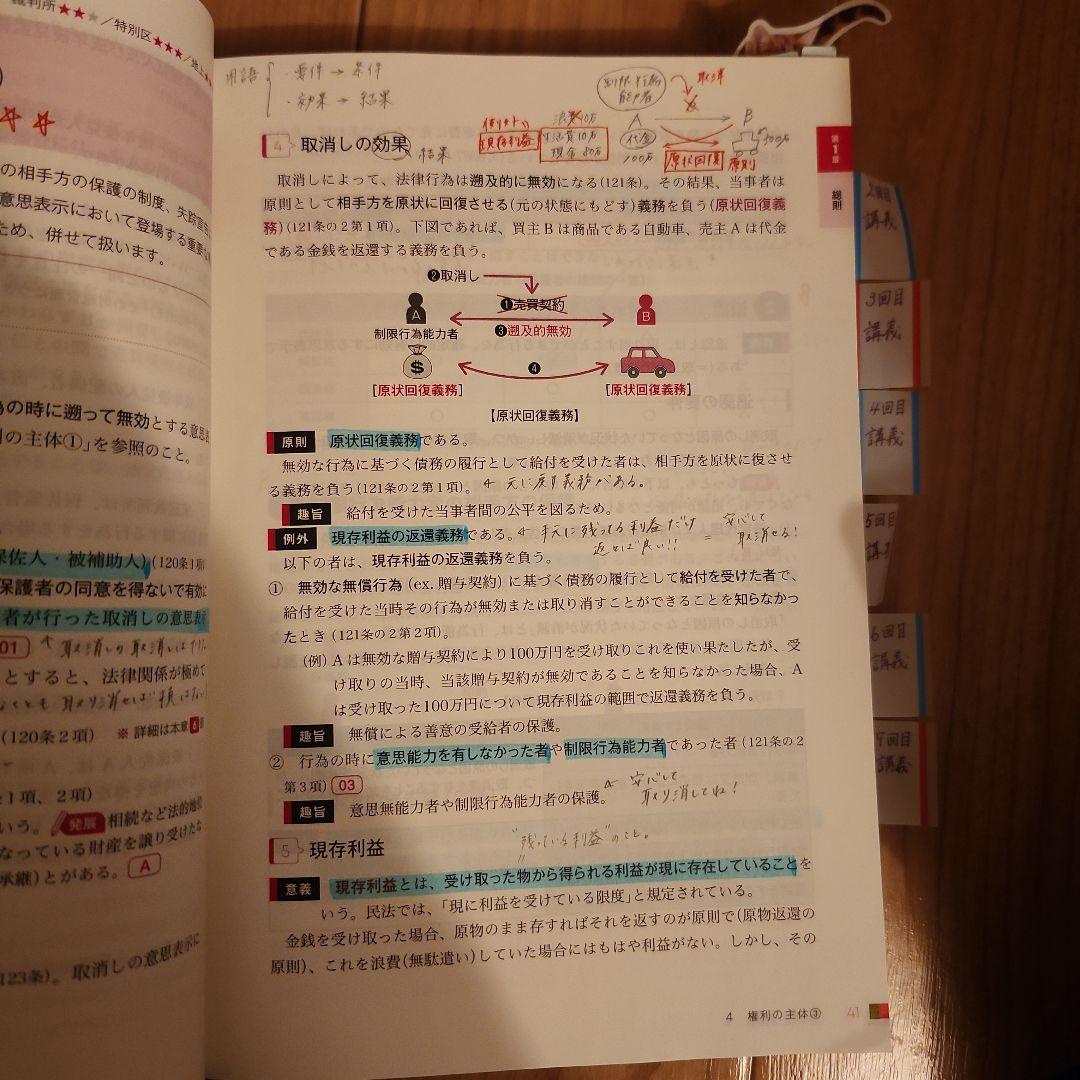 裁判所★★★／特別区★★★／地上★
の相手方の保護の制度、失踪宣
意思表示において登場する重要な
ため、併せて扱います。
為の時に遡って無効とする意思表
利の主体①」を参照のこと。
保佐人・被補助人)(120条1項
保護者の同意を得ないで有効に
者が行った取消しの意思表示
01
とすると、法律関係が極めて
(120条2項) ※詳細は本章6
条1項、2項)
いう。発展 相続など法的地位
なっている財産を譲り受けたな
承継)とがある。A
123条)。取消しの意思表示に
用語
・要件→条件
・効果→結果
制限行為能力者
取消
A
B
代金
100万
100万
浪費10万
生活費10万
現金80万
現存利益
原状回復
原則
4 取消しの効果
結果
取消しによって、法律行為は遡及的に無効になる(121条)。その結果、当事者は
原則として相手方を原状に回復させる(元の状態にもどす)義務を負う(原状回復義
務)(121条の2第1項)。下図であれば、買主Bは商品である自動車、売主Aは代金
である金銭を返還する義務を負う。
❷取消し
❶売買契約
A
B
制限行為能力者
❸遡及的無効
$
❹
[原状回復義務]
[原状回復義務]
【原状回復義務】
原則 原状回復義務である。
無効な行為に基づく債務の履行として給付を受けた者は、相手方を原状に復させ
る義務を負う(121条の2第1項)。
元に戻す義務がある。
趣旨 給付を受けた当事者間の公平を図るため。
例外 現存利益の返還義務である。
手元に残ってる利益だけ
返せば良い!!
= 安心して
取消せる!
以下の者は、現存利益の返還義務を負う。
① 無効な無償行為(ex. 贈与契約)に基づく債務の履行として給付を受けた者で、
給付を受けた当時その行為が無効または取り消すことができることを知らなかっ
たとき(121条の2第2項)。
(例)Aは無効な贈与契約により100万円を受け取りこれを使い果たしたが、受
け取りの当時、当該贈与契約が無効であることを知らなかった場合、A
は受け取った100万円について現存利益の範囲で返還義務を負う。
趣旨 無償による善意の受給者の保護。
② 行為の時に意思能力を有しなかった者や制限行為能力者であった者(121条の2
第3項)03
趣旨 意思無能力者や制限行為能力者の保護。
安心して
取り消してね!
5 現存利益
"残っている利益"のこと。
意義 現存利益とは、受け取った物から得られる利益が現に存在していることを
いう。民法では、「現に利益を受けている限度」と規定されている。
金銭を受け取った場合、原物のまま存すればそれを返すのが原則で(原物返還の
原則)、これを浪費(無駄遣い)していた場合にはもはや利益がない。しかし、その
4 権利の主体③ 41
第1章
総則
2回目
講義
3回目
講義
4回目
講義
5回目
講
6回目
講義
回目
講義